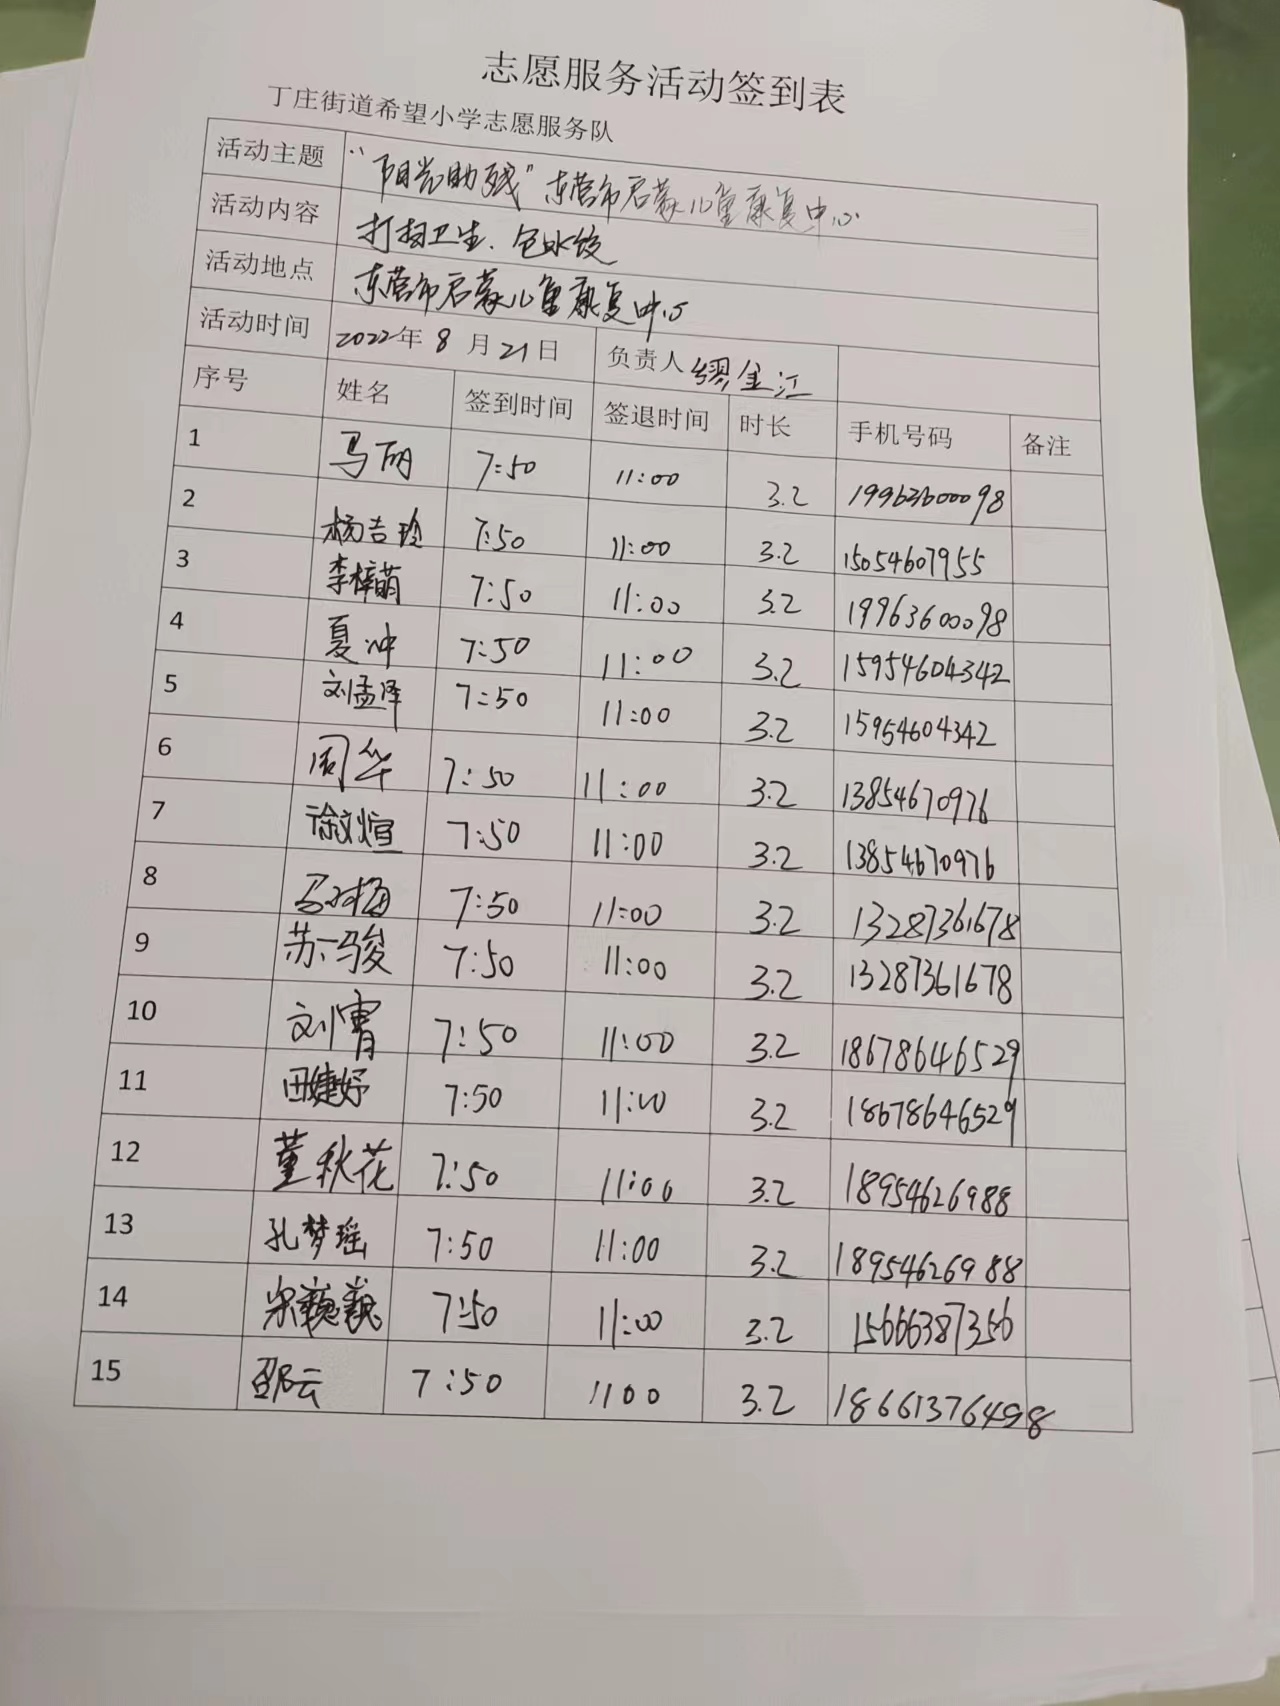 志愿服务活动签到表
丁庄街道希望小学志愿服务队
活动主题 “阳光助残”东营市启蒙儿童康复中心
活动内容 打扫卫生、包水饺
活动地点 东营市启蒙儿童康复中心
活动时间 2022年 8 月 21 日 负责人 缪金江
序号 姓名 签到时间 签退时间 时长 手机号码 备注
1 马丽 7:50 11:00 3.2 19963600098
2 杨吉玲 7:50 11:00 3.2 15054607955
3 李梓萌 7:50 11:00 3.2 19963600098
4 夏冲 7:50 11:00 3.2 15954604342
5 刘孟泽 7:50 11:00 3.2 15954604342
6 周华 7:50 11:00 3.2 13854670976
7 徐文煊 7:50 11:00 3.2 13854670976
8 7:50 11:00 3.2 13287361678
9 苏一骏 7:50 11:00 3.2 13287361678
10 刘霄 7:50 11:00 3.2 18678646529
11 田婕妤 7:50 11:00 3.2 18678646529
12 董秋花 7:50 11:00 3.2 18954626988
13 孔梦瑶 7:50 11:00 3.2 18954626988
14 宋巍巍 7:50 11:00 3.2 15666387356
15 邵云 7:50 1100 3.2 18661376498